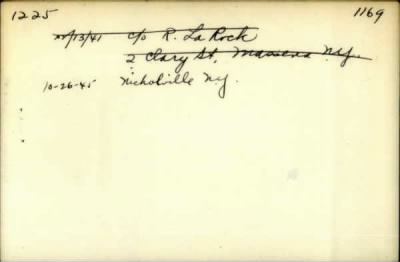 1225 1169
10/13/41 c/o R. LaRock
2 Clary St, Massena N.Y.
10-26-45 Nicholville N.Y.